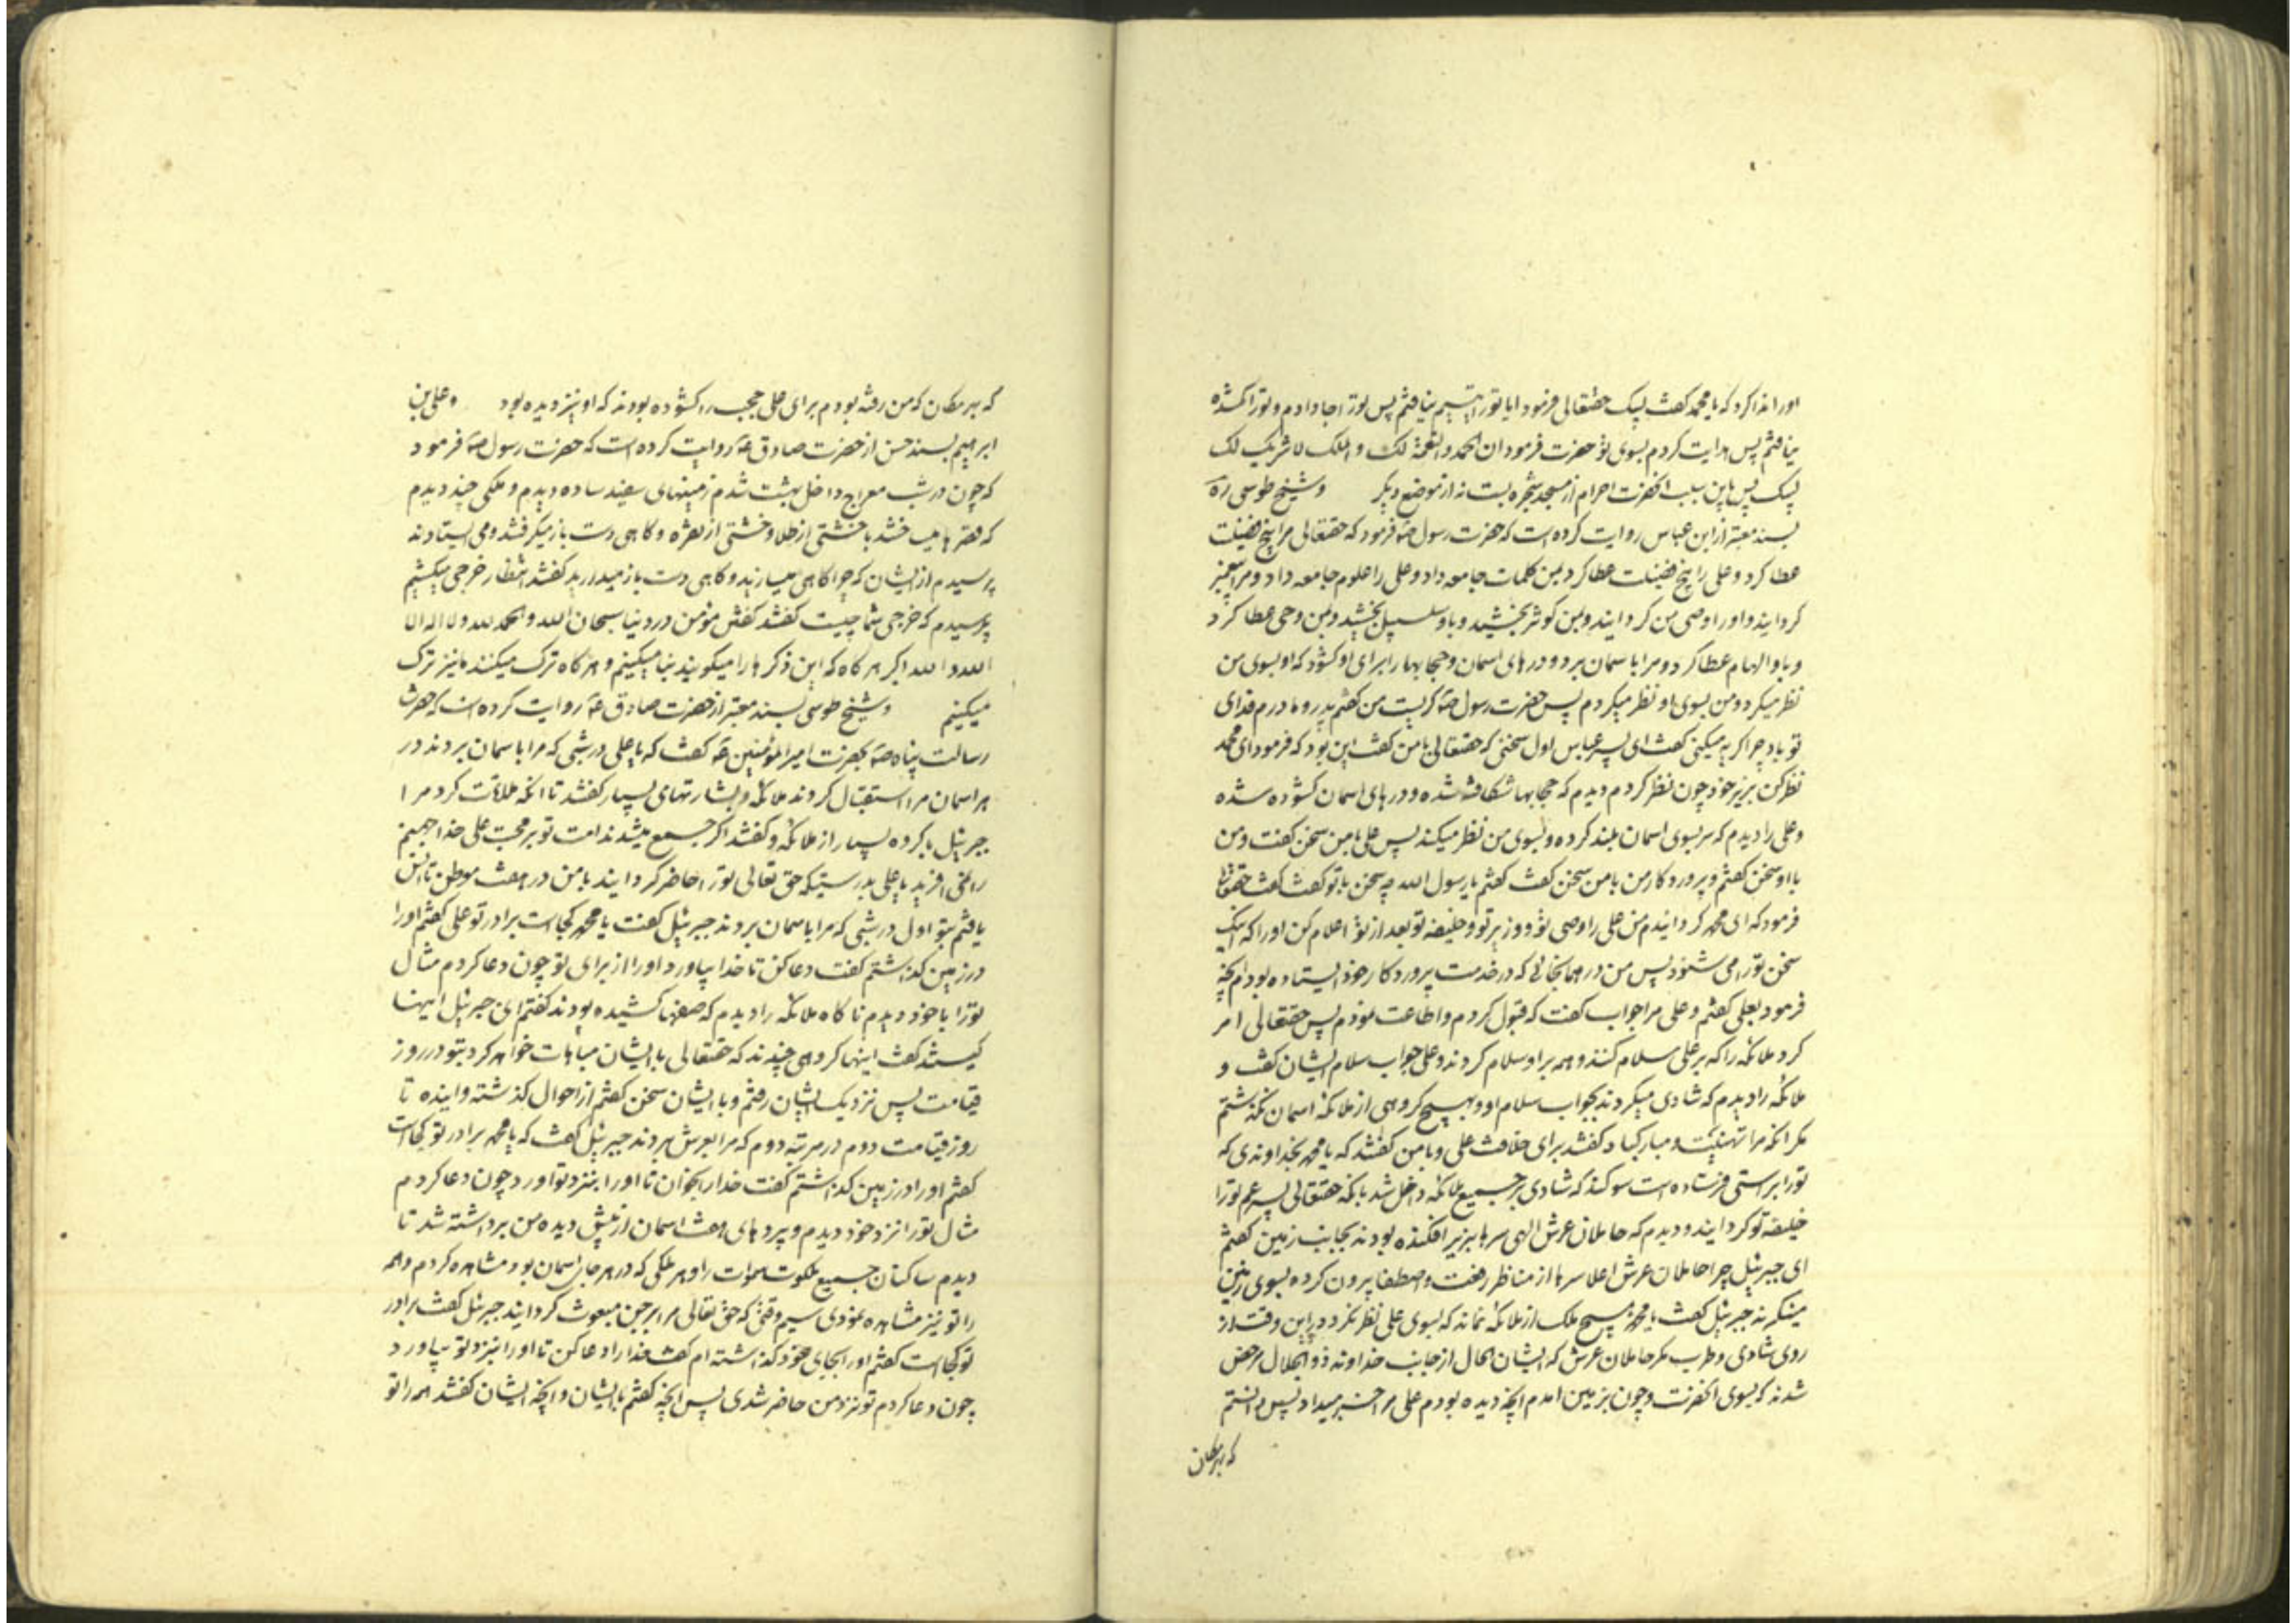 اورا ندا کرد که یا محمد گفت لبیک حقتعالی فرمود ایا تورا یتیم نیافتم پس تورا جا دادم و تورا گمشده
نیافتم پس هدایت کردم بسوی تو حضرت فرمود ان الحمد والنعمة لک و الملک لا شریک لک
لبیک پس باین سبب انحضرت احرام از مسجد شجره بست نه از موضع دیگر و شیخ طوسی ره
بسند معتبر از ابن عباس روایت کرده است که حضرت رسول ص فرمود که حقتعالی مرا پنج فضیلت
عطا کرد و علی را پنج فضیلت عطا کرد بمن کلمات جامعه داد و علی را علوم جامعه داد و مرا پیغمبر
کردانید و اورا وصی من کردانید و بمن کوثر بخشید و باو سلسبیل بخشید و بمن وحی عطا کرد
و باو الهام عطا کرد و مرا باسمان برد و درهای اسمان و حجابها را برای او کشود که او بسوی من
نظر میکرد و من بسوی او نظر میکردم پس حضرت رسول ص کریست من کفتم پدر و مادرم فدای
تو باد چرا کریه میکنی کفت ای پسر عباس اول سخنی که حقتعالی با من کفت این بود که فرمود ای محمد
نظر کن بزیر خود چون نظر کردم دیدم که حجابها شکافته شده و درهای اسمان کشوده شده
و علی را دیدم که سر بسوی اسمان بلند کرده و بسوی من نظر میکند پس علی با من سخن کفت و من
با او سخن کفتم و پروردکار من با من سخن کفت کفتم یا رسول الله چه سخن با تو کفت کفت حقتعالی
فرمود که ای محمد کردانیدم من علی را وصی تو و وزیر تو و خلیفه تو بعد از تو اعلام کن اورا که اینک
سخن تورا می شنود پس من در همانجائی که در خدمت پروردکار خود ایستاده بودم انچه
فرمود بعلی کفتم و علی مرا جواب کفت که قبول کردم و اطاعت نمودم پس حقتعالی امر
کرد ملائکه را که بر علی سلام کنند و همه بر او سلام کردند و علی جواب سلام ایشان کفت و
ملائکه را دیدم که شادی میکردند بجواب سلام او و بهیچ کروهی از ملائکه اسمان نکذشتم
مکر انکه مرا تهنیت و مبارکباد کفتند برای خلافت علی و با من کفتند که یا محمد بخداوندی که
تورا براستی فرستاده است سوکند که شادی بر جمیع ملائکه داخل شد بانکه حقتعالی پسر عم تورا
خلیفه تو کردانید و دیدم که حاملان عرش الهی سرها بزیر افکنده بودند بجانب زمین کفتم
ای جبرئیل چرا حاملان عرش اعلا سرها از مناظر رفعت و اصطفا بیرون کرده بسوی زمین
مینکرند جبرئیل کفت یا محمد هیچ ملک از ملائکه نماند که بسوی علی نظر نکرد در این وقت از
روی شادی و طرب مکر حاملان عرش که ایشان الحال از جانب خداوند ذو الجلال مرخص
شدند که بسوی انحضرت و چون بزمین امدم انچه دیده بودم علی مرا خبر میداد پس دانستم
که بهر مکان
که بهر مکان که من رفته بودم برای علی حجب را کشوده بودند که او نیز دیده بود و علی بن
ابراهیم بسند حسن از حضرت صادق ع روایت کرده است که حضرت رسول ص فرمود
که چون در شب معراج داخل بهشت شدم زمینهای سفید ساده دیدم و ملکی چند دیدم
که قصرها میساختند با خشتی از طلا و خشتی از نقره و کاهی دست باز میکرفتند و می ایستادند
پرسیدم از ایشان که چرا کاهی میسازید و کاهی دست باز میدارید کفتند انتظار خرجی میکشیم
پرسیدم که خرجی شما چیست کفتند کفتن مؤمن در دنیا سبحان الله و الحمد لله و لا اله الا
الله و الله اکبر هر کاه که این ذکرها را میکویند بنا میکنیم و هر کاه ترک میکنند ما نیز ترک
میکنیم و شیخ طوسی بسند معتبر از حضرت صادق ع روایت کرده است که حضرت
رسالت پناه ص بحضرت امیر المؤمنین ع کفت که یا علی در شبی که مرا باسمان بردند در
هر اسمان مرا استقبال کردند ملائکه و بشارتهای بسیار کفتند تا انکه ملاقات کرد مرا
جبرئیل با کروه بسیار از ملائکه و کفتند اکر جمع میشدند امت تو بر محبت علی خدا جهنم
را نمی افرید یا علی بدرستیکه حق تعالی تورا حاضر کردانید با من در هفت موطن تا انس
یافتم بتو اول در شبی که مرا باسمان بردند جبرئیل کفت یا محمد کجاست برادر تو علی کفتم اورا
در زمین کذاشتم کفت دعا کن تا خدا بیاورد اورا از برای تو چون دعا کردم مثال
تورا با خود دیدم ناکاه ملائکه را دیدم که صفها کشیده بودند کفتم ای جبرئیل اینها
کیستند کفت اینها کروهی چندند که حقتعالی با ایشان مباهات خواهد کرد بتو در روز
قیامت پس نزدیک ایشان رفتم و با ایشان سخن کفتم از احوال کذشته و اینده تا
روز قیامت دوم در مرتبه دوم که مرا بعرش بردند جبرئیل کفت که یا محمد برادر تو کجاست
کفتم اورا در زمین کذاشتم کفت خدا را بخوان تا اورا بنزد تو اورد چون دعا کردم
مثال تورا نزد خود دیدم و پردهای هفت اسمان از پیش دیده من برداشته شد تا
دیدم ساکنان جمیع ملکوت سموات را و هر ملکی که در هر جای اسمان بود مشاهده کردم و همه
را تو نیز مشاهده نمودی سیم وقتی که حق تعالی مرا بر جن مبعوث کردانید جبرئیل کفت برادر
تو کجاست کفتم اورا بجای خود کذاشته ام کفت خدا را دعا کن تا اورا بنزد تو بیاورد
چون دعا کردم تو نزد من حاضر شدی پس انچه کفتم با ایشان و انچه ایشان کفتند همه را تو